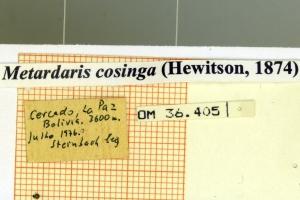 Metardaris cosinga (Hewitson, 1874)
Cercado, La Paz
Bolivia. 3600 m.
Julho 1976.
Steinbach leg
OM 36.405